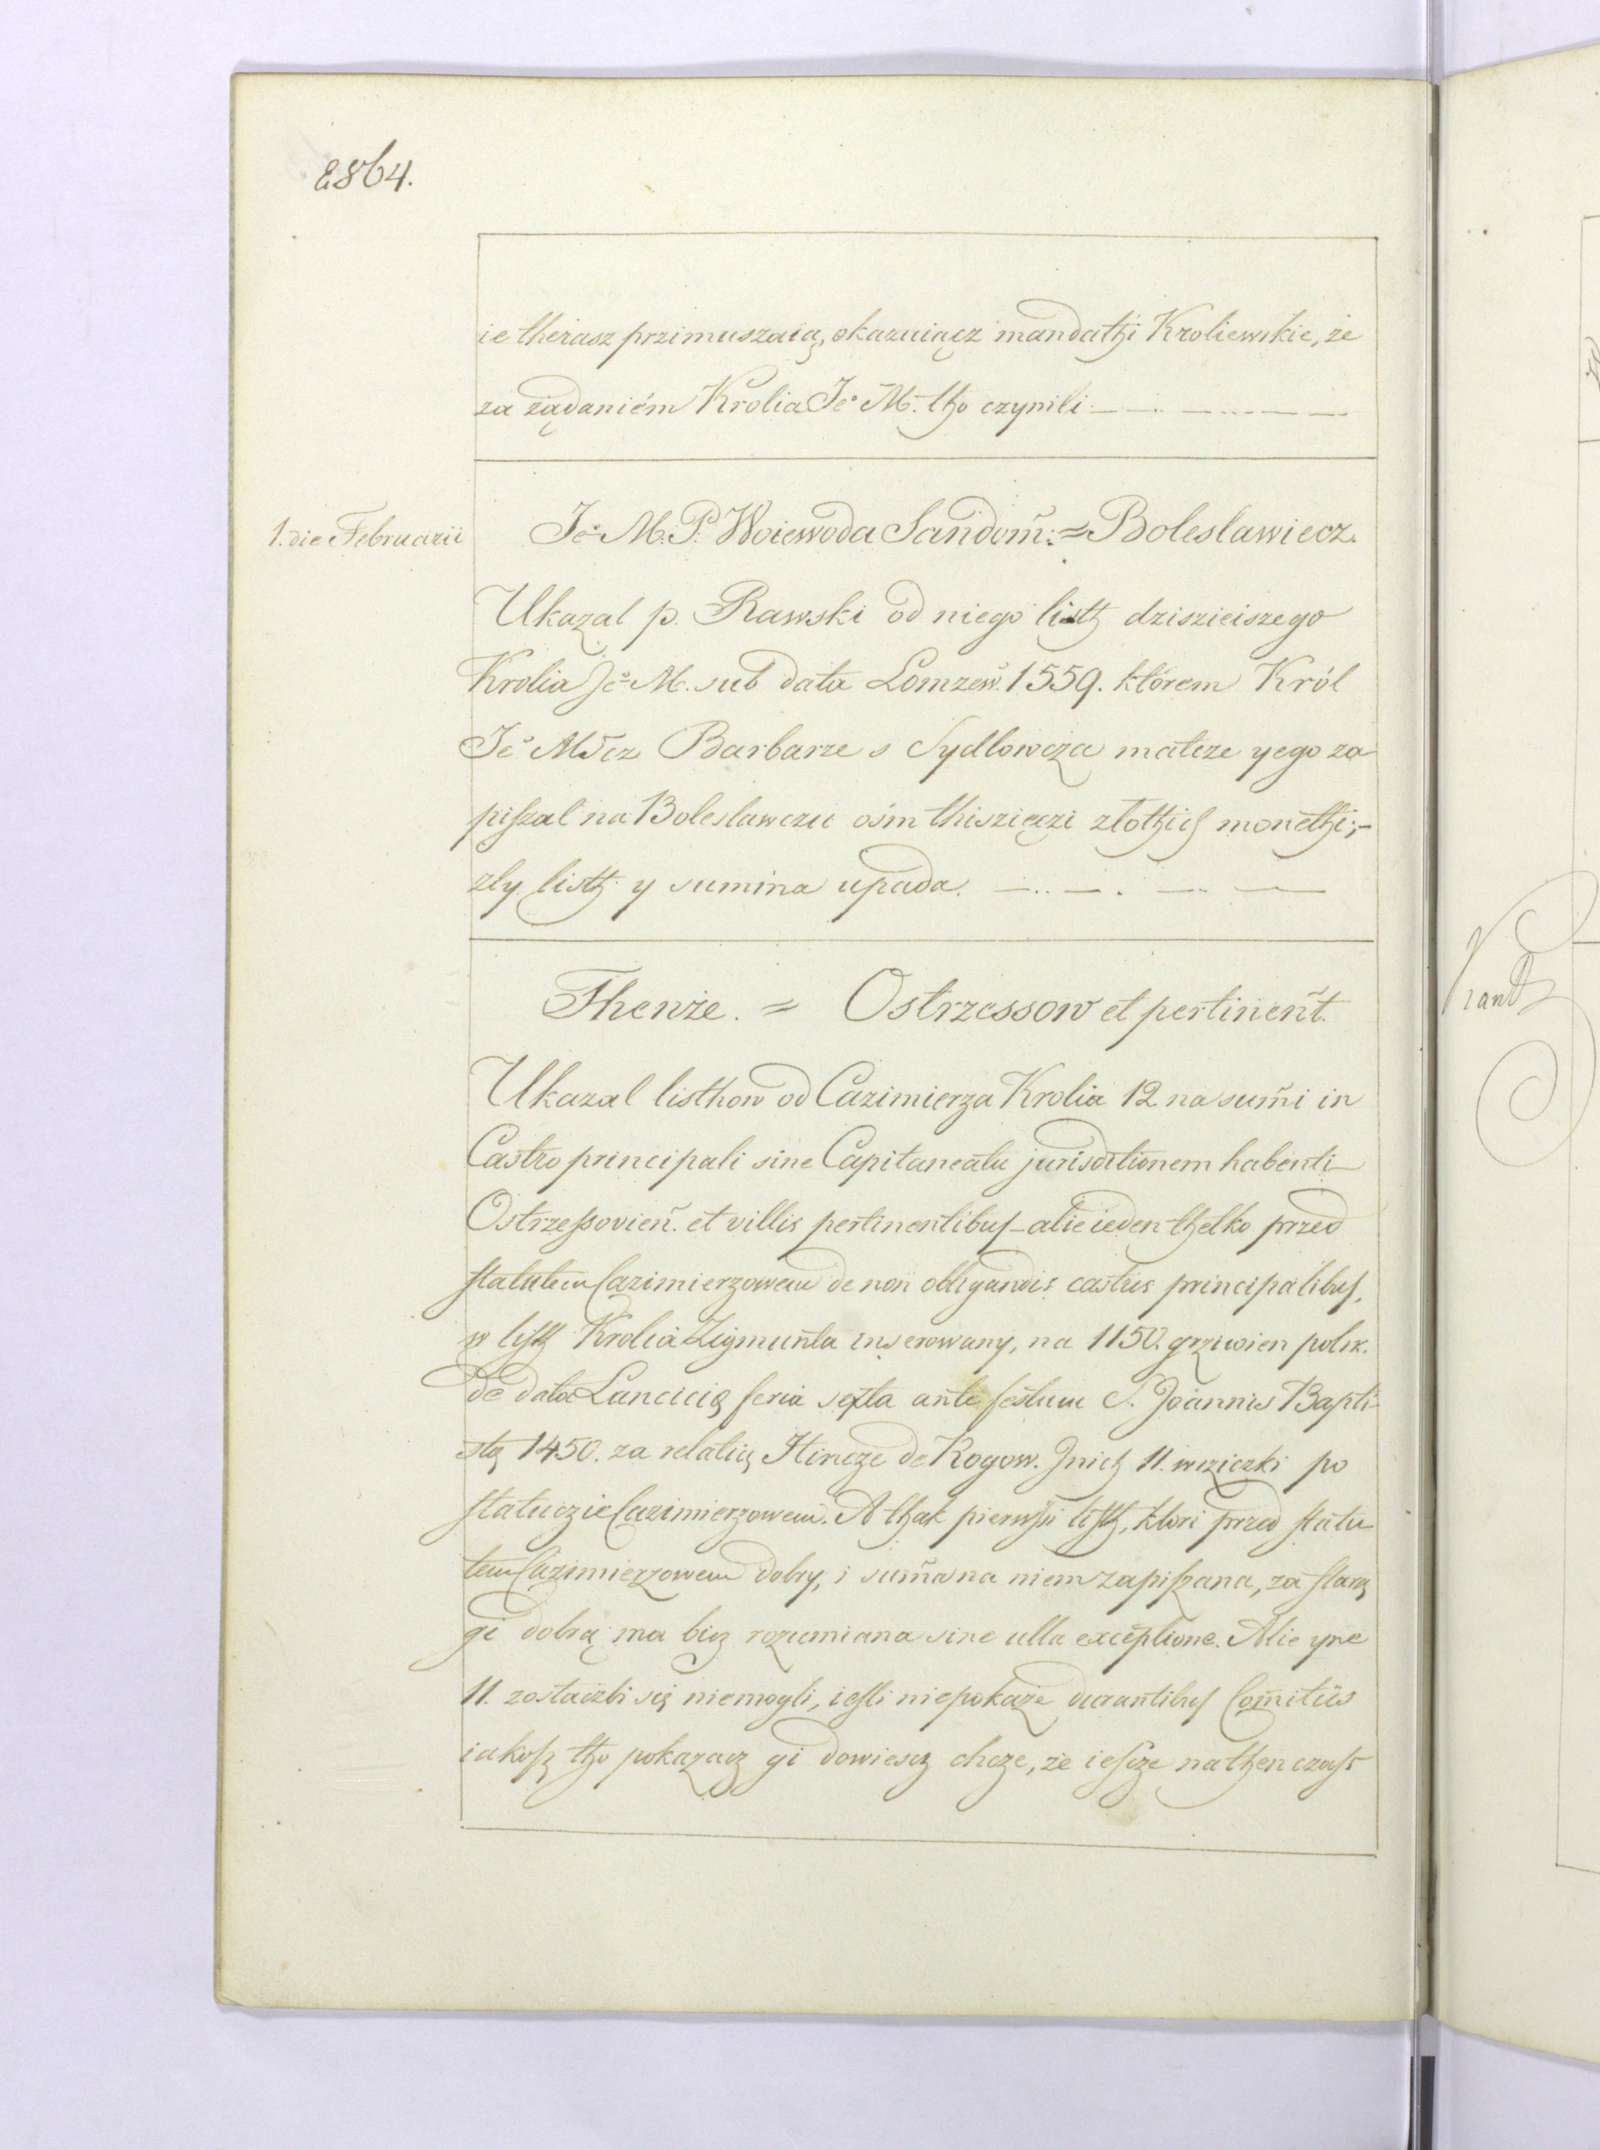 2864.
ie therasz przimuszaią, okazuiącz mandathi Kroliewskie, że
za żądaniém Krolia Je° M. tho czynili
1. die Februarii
Je° M. P. Woiewoda Sandom̃: = Boleslawiecz.
Ukazal p. Rawski od niego listh dzisieiszego
Krolia Je° M. sub data Lomzeñ. 1559. którem Król
Je° Mcz Barbarze s Sydlowcza matcze yego za
piszal na Boleslawczu ośm thisziączi złothich monethi;-
zły listh y summa upada.
Thenże. = Ostrzessow et pertineñt.
Ukazal listhow od Cazimierza Krolia 12 na sum̃i in
Castro principali sine Capitaneatu jurisditionem habenti
Ostrzessovieñ. et villis pertinentibus - alie ieden thelko przed
statutem Cazimierzowem de non obligandis castris principalibus,
w listh Krolia Zigmunta inserowany, na 1150. grziwien polsk.
de data Lancicię feria sexta ante festum S. Joannis Bapti-
stę 1450. za relatią Hincze de Rogow. Jnich 11. wziczki po
statuczie Cazimierzowem. A thak pierwszi listh, ktori przed statu
tem Cazimierzowem dobry, i sum̃a na niem zapiszana, za starą
gi dobrą ma bicz rozumiana sine ulla exceptione. Alie yne
11. zostaczbi się niemogli, iesli niepokaże durantibus Com̃itiis
iakosz tho pokazacz gi dowiescz chcze, że iescze na then czass